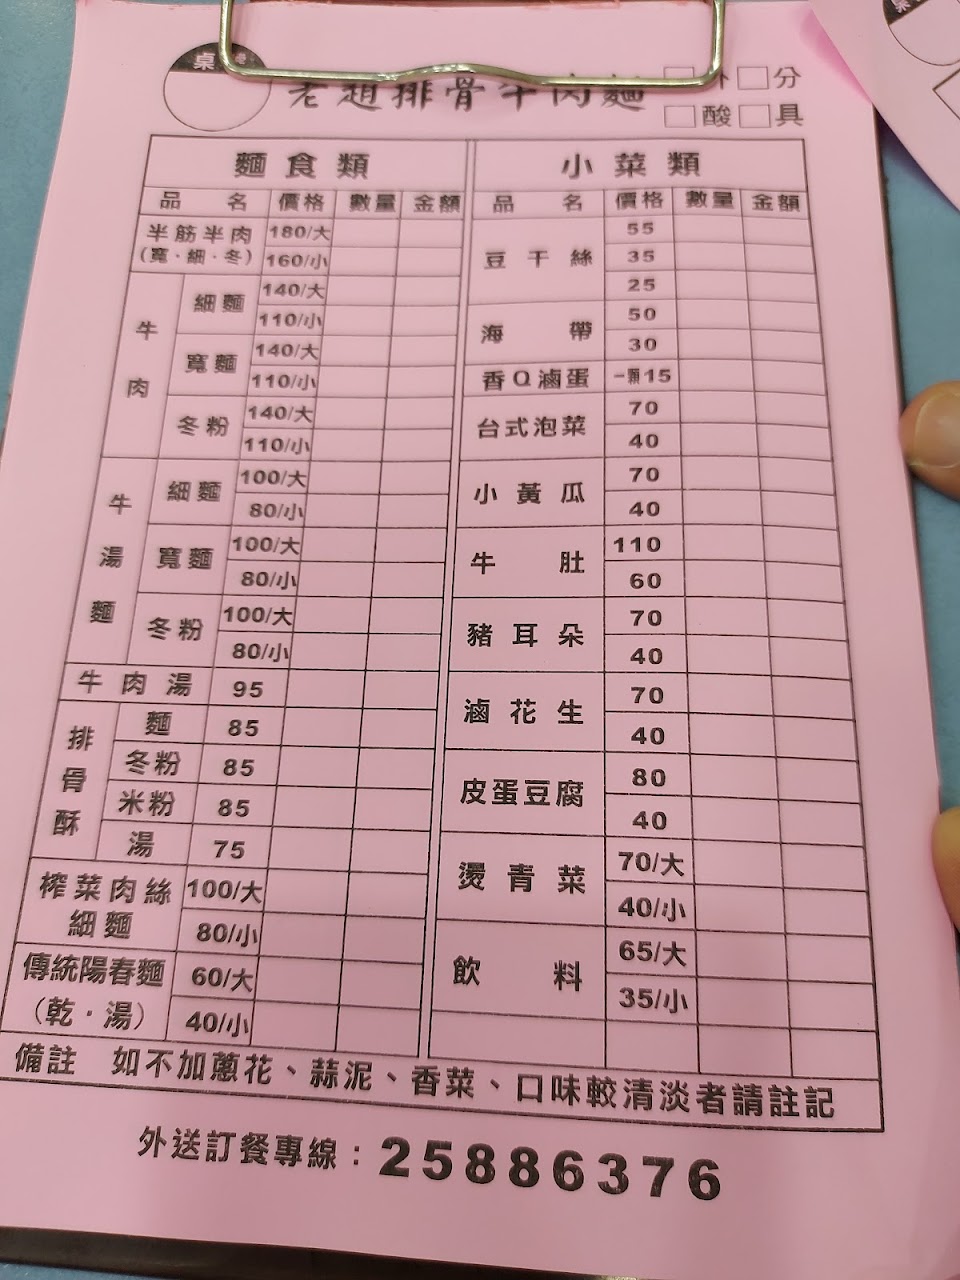 桌
老趙排骨牛肉麵
外 分
酸 具
麵食類
品名 價格 數量 金額
半筋半肉
(寬·細·冬)
180/大
160/小
牛肉
細麵
140/大
110/小
寬麵
140/大
110/小
冬粉
140/大
110/小
牛湯麵
細麵
100/大
80/小
寬麵
100/大
80/小
冬粉
100/大
80/小
牛肉湯 95
排骨酥
麵 85
冬粉 85
米粉 85
湯 75
榨菜肉絲
細麵
100/大
80/小
傳統陽春麵
(乾·湯)
60/大
40/小
小菜類
品名 價格 數量 金額
豆干絲
55
35
25
海帶
50
30
香Q滷蛋 一顆15
台式泡菜
70
40
小黃瓜
70
40
牛肚
110
60
豬耳朵
70
40
滷花生
70
40
皮蛋豆腐
80
40
燙青菜
70/大
40/小
飲料
65/大
35/小
備註 如不加蔥花、蒜泥、香菜、口味較清淡者請註記
外送訂餐專線：25886376